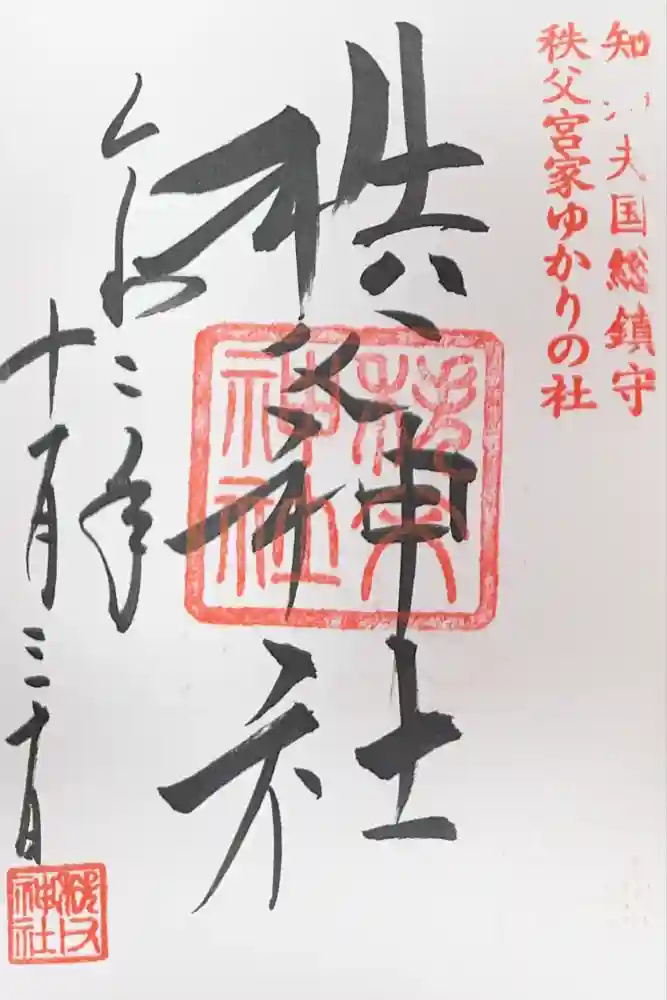 知夫国総鎮守
秩父宮家ゆかりの社
秩父神社
秩父
神社
令和二年
十月三十日
秩父
神社